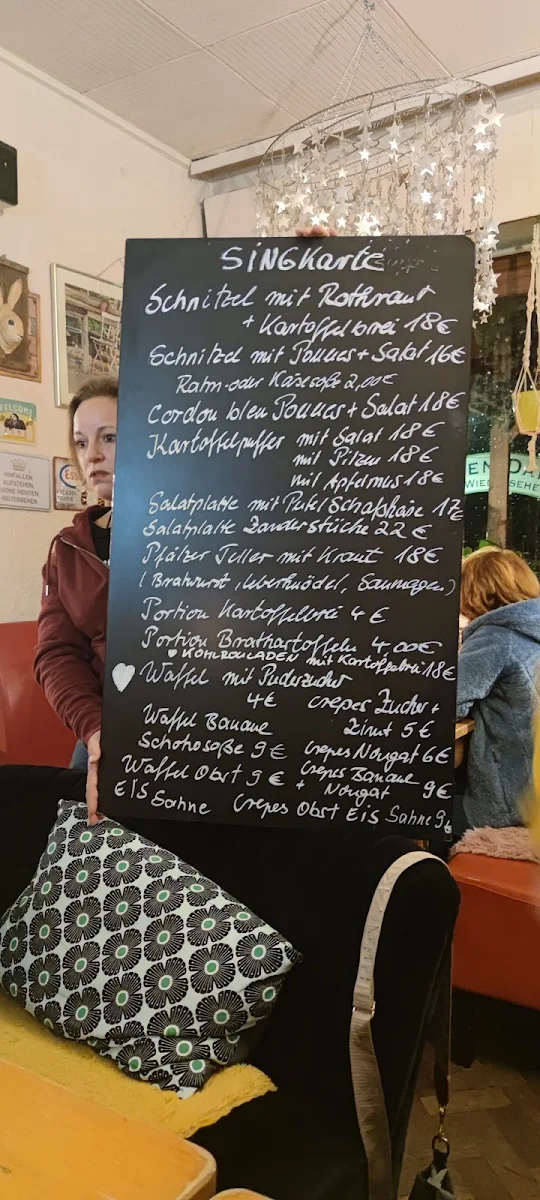 SINGKarte
Schnitzel mit Rothraut
+ Kartoffelbrei 18€
Schnitzel mit Pommes + Salat 16€
Rahm-oder Käsesoße 2,00€
Cordon bleu Pommes + Salat 18€
Kartoffelpuffer mit Salat 18€
mit Pilzen 18€
mit Apfelmus 18€
Salatplatte mit Putel Schafskäse 17€
Salatplatte Zanderstüche 22€
Pfälzer Teller mit Kraut 18€
(Bratwurst, leberknödel, Saumagen)
Portion Kartoffelbrei 4€
Portion Brathartoffeln 4,00€
♥ KOHLROULADEN mit Kartoffelbrei 18€
Waffel mit Puderzucker
4€ crepes Zucker +
Zimt 5€
Waffel Banane
Schohosoße 9€ crepes Nougat 6€
Waffel Obst 9€ crepes Banane
+ Nougat 9€
EIS Sahne Crepes Obst EIS Sahne 9€
WELCOME
HINFALLEN
AUFSTEHEN
KRONE RICHTEN
WEITERGEHEN
ESS
EN DA
WIEDERSEHE